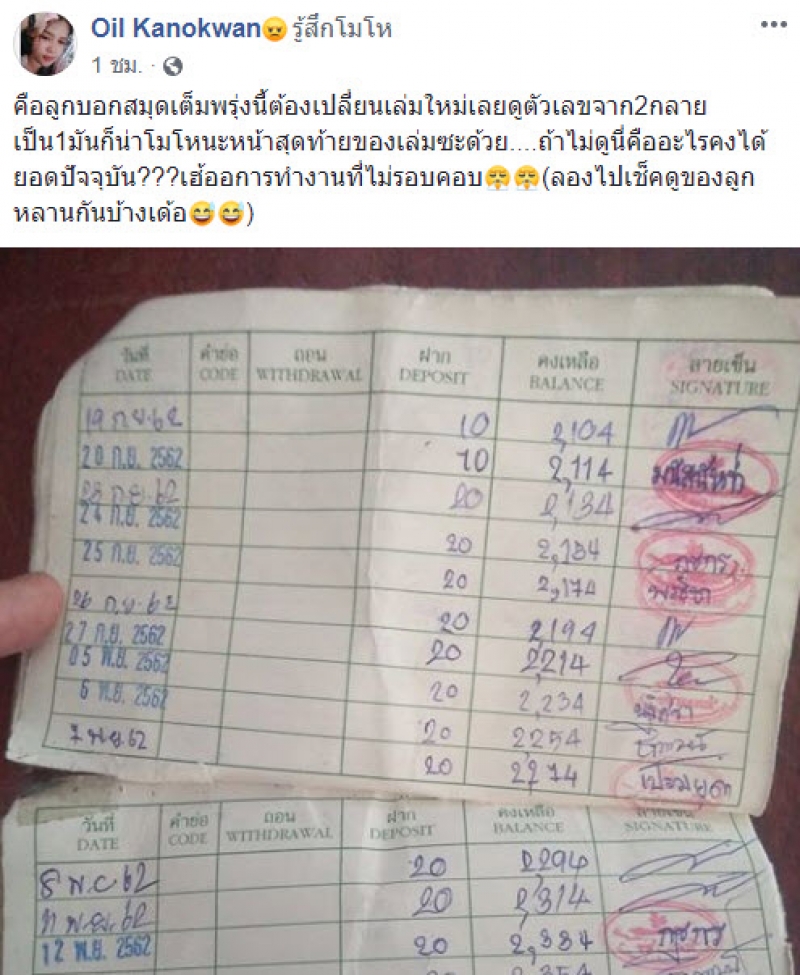 Oil Kanokwan😠รู้สึกโมโห
1 ชม. ·
คือลูกบอกสมุดเต็มพรุ่งนี้ต้องเปลี่ยนเล่มใหม่เลยดูตัวเลขจาก2กลาย
เป็น1มันก็น่าโมโหนะหน้าสุดท้ายของเล่มซะด้วย....ถ้าไม่ดูนี่คืออะไรคงได้
ยอดปัจจุบัน???เฮ้ออการทำงานที่ไม่รอบคอบ😤😤(ลองไปเช็คดูของลูก
หลานกันบ้างเด้อ😅😅)
วันที่ คำย่อ ถอน ฝาก คงเหลือ ลายเซ็น
DATE CODE WITHDRAWAL DEPOSIT BALANCE SIGNATURE
19 ก.ย. 62 10 2,104
20 ก.ย. 2562 10 2,114
20 2,134
24 ก.ย. 2562
25 ก.ย. 2562 20 2,154
20 2,174
26 ก.ย. 62 20 2,194
27 ก.ย. 2562 20 2,214
05 พ.ย. 2562
6 พ.ย. 2562 20 2,234
20 2,254
7 พ.ย. 62 20 2,274
วันที่ คำย่อ ถอน ฝาก คงเหลือ ลายเซ็น
DATE CODE WITHDRAWAL DEPOSIT BALANCE SIGNATURE
20 2,294
20 2,314
12 พ.ย. 2562 20 2,334
2,354